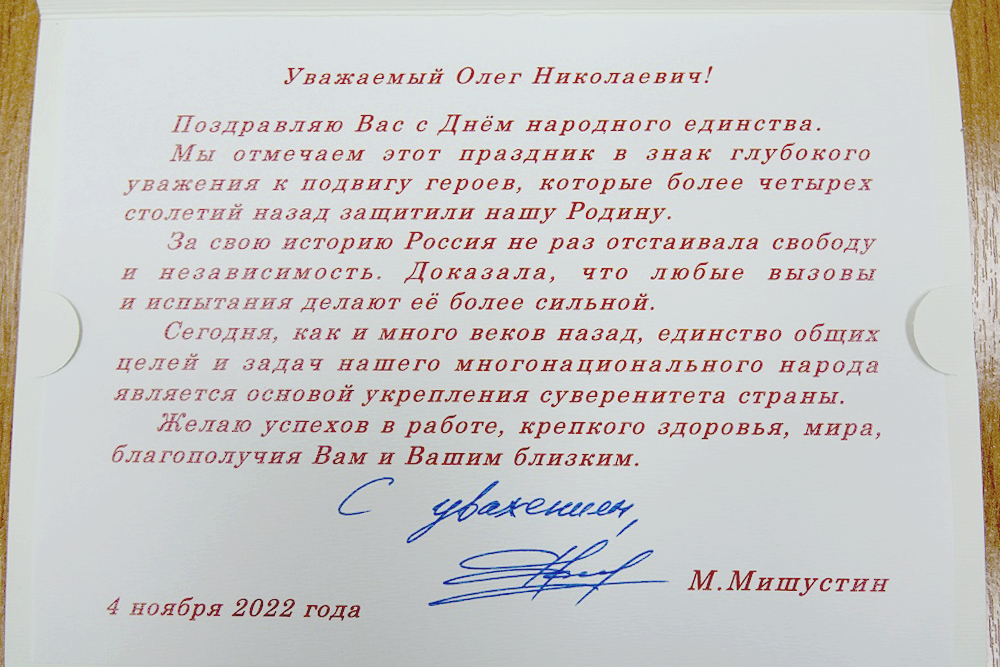 Уважаемый Олег Николаевич!
Поздравляю Вас с Днём народного единства.
Мы отмечаем этот праздник в знак глубокого
уважения к подвигу героев, которые более четырех
столетий назад защитили нашу Родину.
За свою историю Россия не раз отстаивала свободу
и независимость. Доказала, что любые вызовы
и испытания делают её более сильной.
Сегодня, как и много веков назад, единство общих
целей и задач нашего многонационального народа
является основой укрепления суверенитета страны.
Желаю успехов в работе, крепкого здоровья, мира,
благополучия Вам и Вашим близким.
С уважением,
М.Мишустин
4 ноября 2022 года